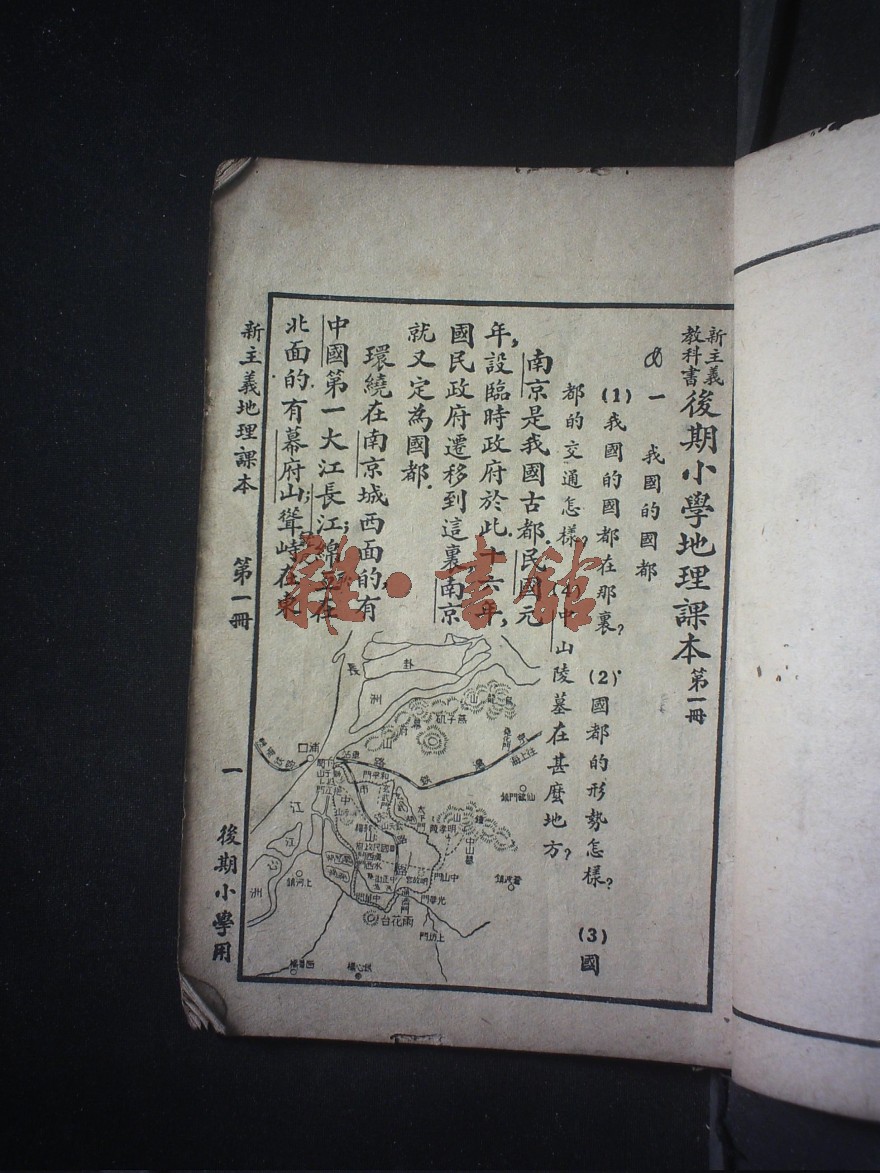 新主義
教科書
後期小學地理課本 第一冊
一 我國的國都
(1)我國的國都在那裏? (2)國都的形勢怎樣? (3)國
都的交通怎樣? (4)中山陵墓在甚麼地方?
南京是我國古都.民國元
年,設臨時政府於此.十六年,
國民政府遷移到這裏,南京
就又定為國都.
環繞在南京城西面的,有
中國第一大江長江;綿亙在
北面的.有幕府山;聳峙在東
新主義地理課本 第一冊 一 後期小學用
雜·書館
長
江
八卦洲
江心洲
燕子磯
幕府山
烏龍山
浦口
和平門
仙鶴門鎮
太平門
明孝陵
中山墓
中山門
光華門
雨花台
上坊門
上河鎮